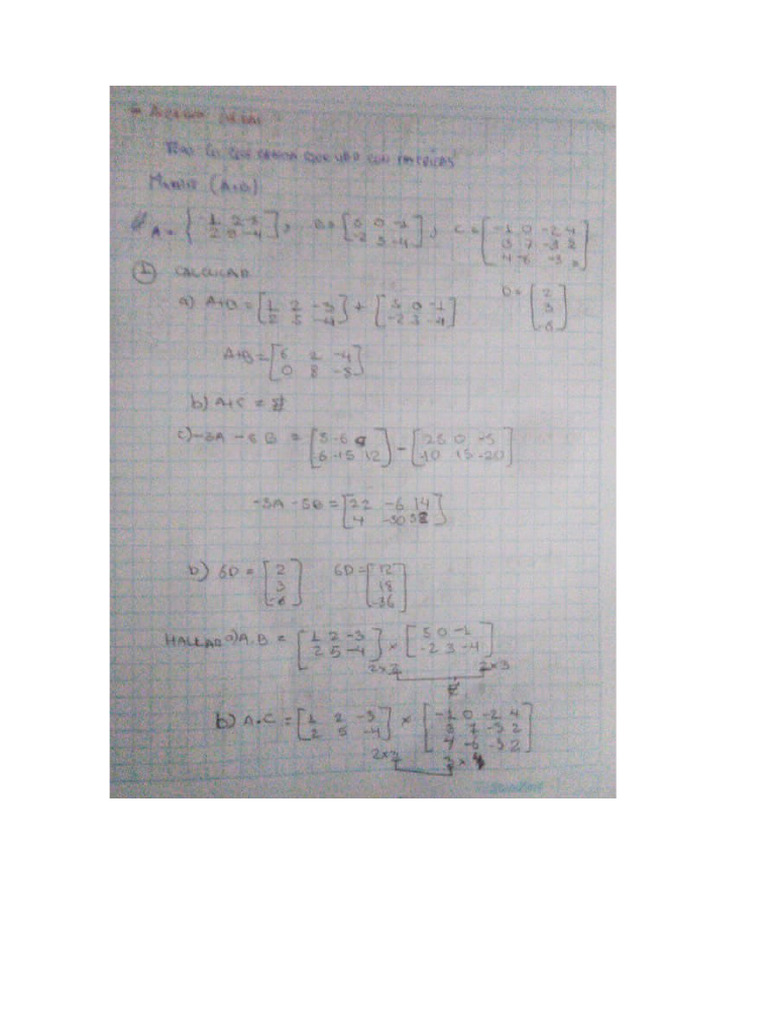 MATRIZ (A+B)
A = [1 2 -3 / 2 5 -4], B = [5 0 -1 / -2 3 -4], C = [-1 0 -2 4 / 3 7 -3 2 / 4 -6 -3 2]
① CALCULAR
D = [2 / 3 / -6]
a) A+B = [1 2 -3 / 2 5 -4] + [5 0 -1 / -2 3 -4]
A+B = [6 2 -4 / 0 8 -8]
b) A+C =
c) -3A - 5B = [3 -6 9 / 6 -15 12] - [25 0 -5 / 10 15 -20]
-3A - 5B = [22 -6 14 / 4 -30 32]
D) 6D = [2 / 3 / -6] 6D = [12 / 18 / -36]
HALLAR a) A.B = [1 2 -3 / 2 5 -4] × [5 0 -1 / -2 3 -4]
2×3 2×3
b) A.C = [1 2 -3 / 2 5 -4] × [-1 0 -2 4 / 3 7 -3 2 / 4 -6 -3 2]
2×3 3×4